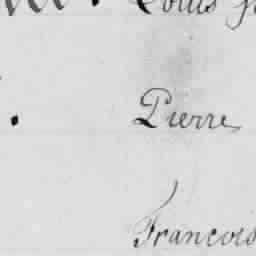 Louis
Pierre
François